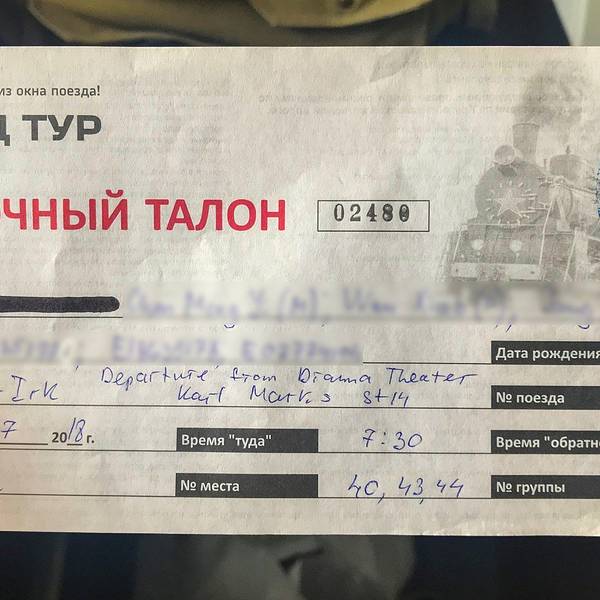 из окна поезда!
Д ТУР
ОЧНЫЙ ТАЛОН 02480
Дата рождения
Departure from Drama Theater
- Irk Karl Marks st 14 № поезда
7 2018 г. Время "туда" 7:30 Время "обратно
№ места 40, 43, 44 № группы